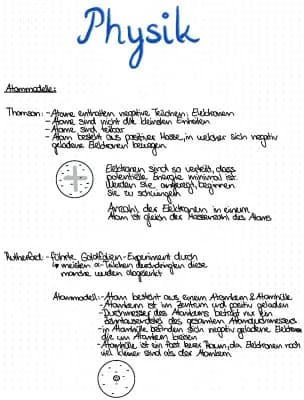 Physik
Atommodelle:
Thomson: - Atome enthalten negative Teilchen: Elektronen
- Atome sind nicht die kleinsten Einheiten
- Atome sind teilbar
- Atom besteht aus positiver Masse, in welcher sich negativ
geladene Elektronen bewegen
Elektronen sind so verteilt, dass
potentielle Energie minimal ist.
Werden sie angeregt, beginnen
sie zu schwingen
Anzahl der Elektronen in einem
Atom ist gleich der Massenzahl des Atoms
Rutherford: - führte Goldfolien-Experiment durch
↳ meisten α-Teilchen durchdringten diese
manche wurden abgelenkt
Atommodell: - Atom besteht aus einem Atomkern & Atomhülle
- Atomkern ist im Zentrum und positiv geladen
- Durchmesser des Atomkerns beträgt nur ein
zehntausendstel des gesamten Atomdurchmessers
- in Atomhülle befinden sich negativ geladene Elektronen
die um Atomkern kreisen
- Atomhülle ist ein fast leerer Raum, da Elektronen noch
viel kleiner sind als der Atomkern